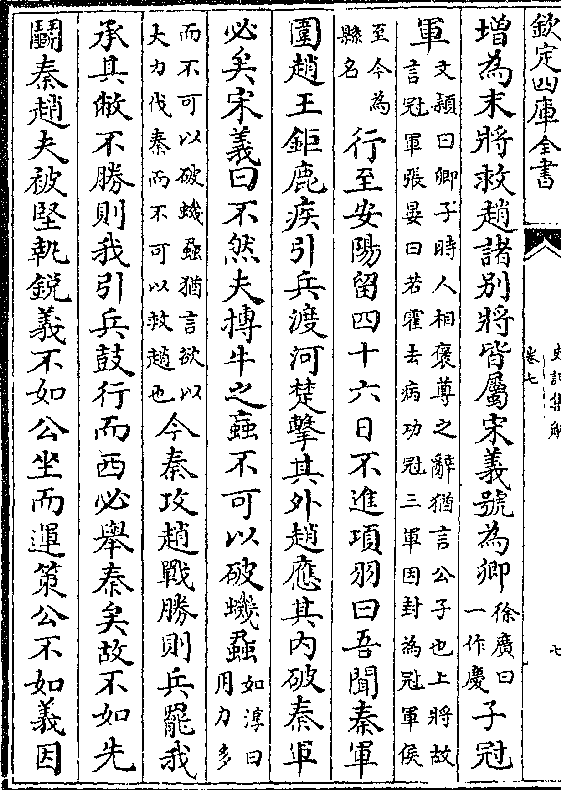 欽定四庫全書
史記集解
卷七
七
增為末將救趙諸別將皆屬宋義號為卿徐廣曰一作慶子冠
軍文穎曰卿子時人相褒尊之辭猶言公子也上將故言冠軍張晏曰若霍去病功冠三軍因封為冠軍侯
至今為縣名行至安陽留四十六日不進項羽曰吾聞秦軍
圍趙王鉅鹿疾引兵渡河楚擊其外趙應其內破秦軍
必矣宋義曰不然夫搏牛之蝱不可以破蟣蝨如淳曰用力多
而不可以破蟣蝨猶言欲以大力伐秦而不可以救趙也今秦攻趙戰勝則兵罷我
承其敝不勝則我引兵鼓行而西必舉秦矣故不如先
鬭秦趙夫被堅執銳義不如公坐而運策公不如義因